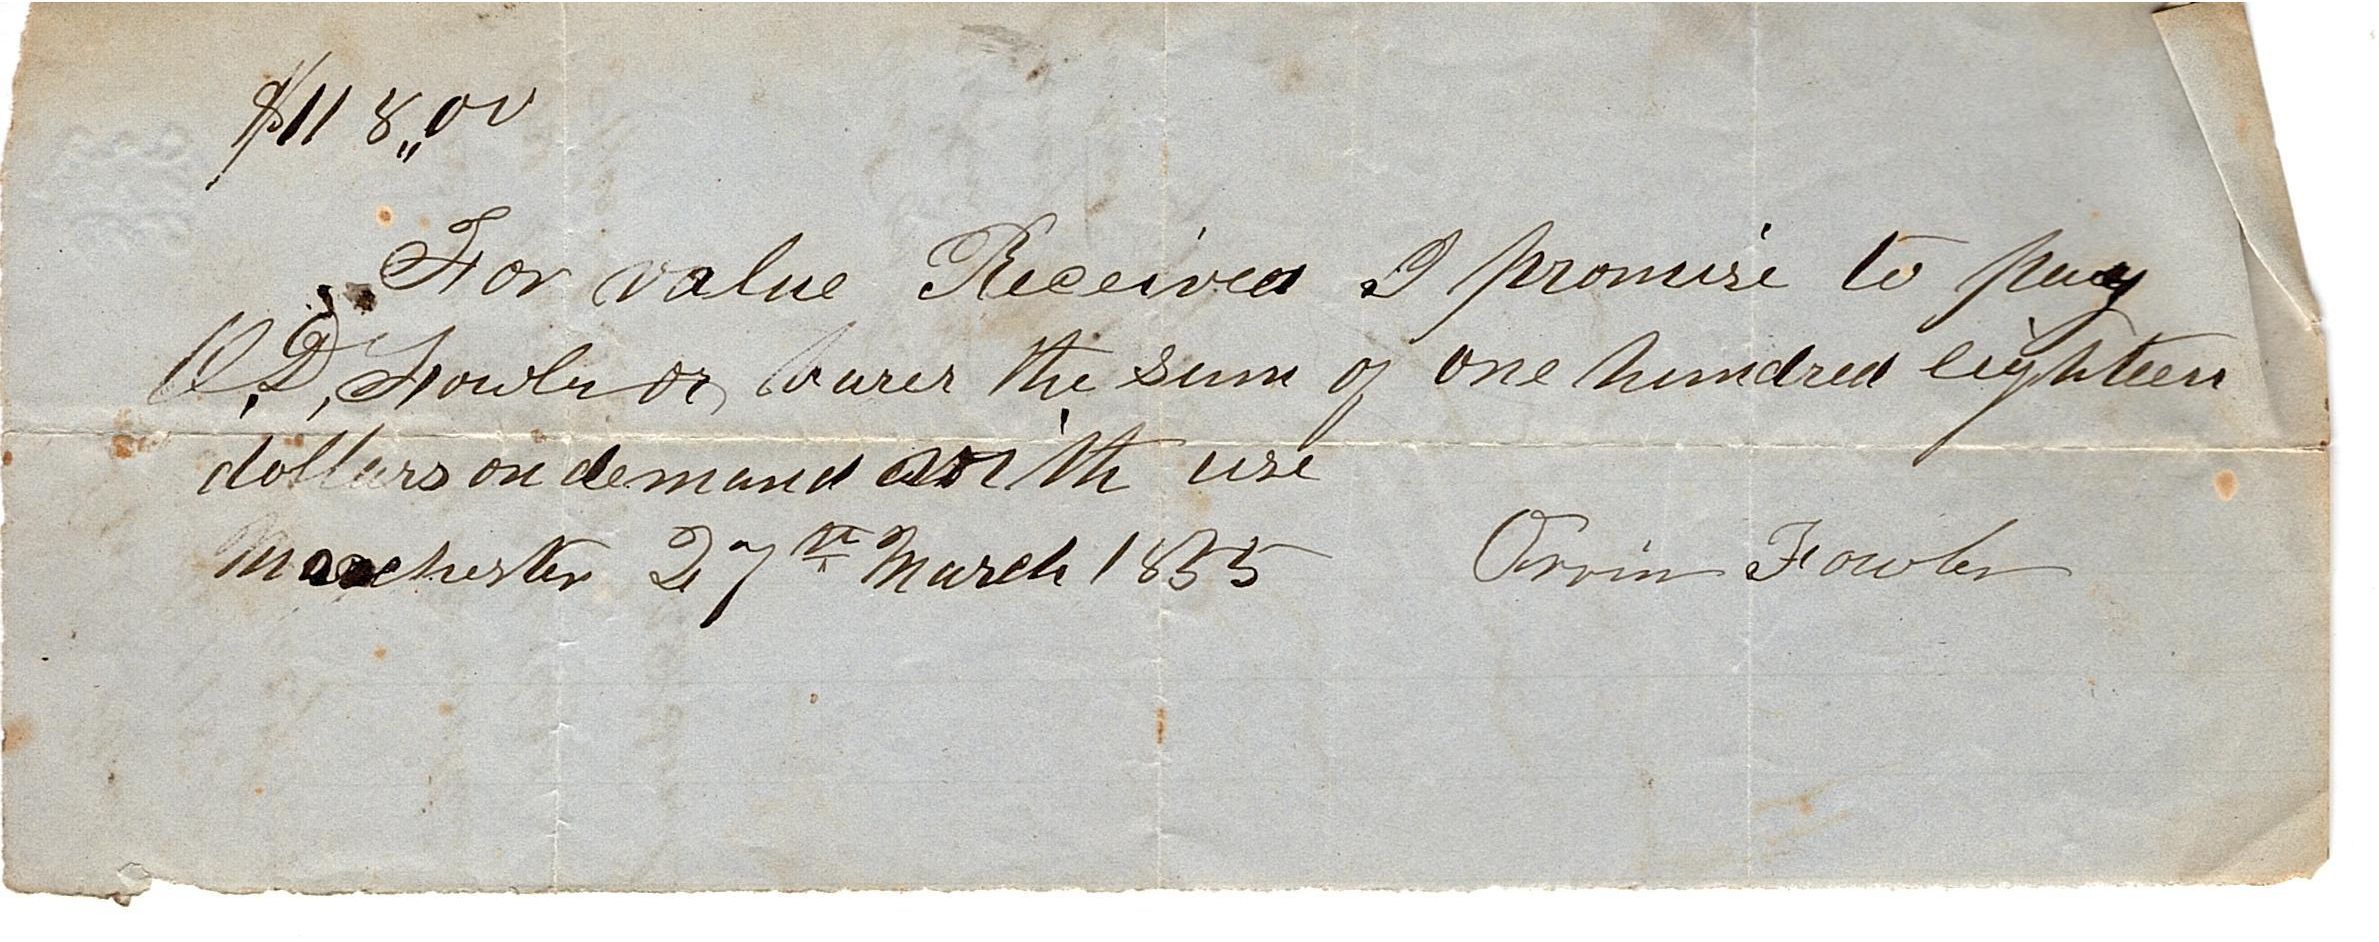 $118,,00
For value Received I promise to pay
O. D, Fowler or barer the sum of one hundred eighteen
dollars on demand with use
Manchester 27th March 1855 Orrin Fowler